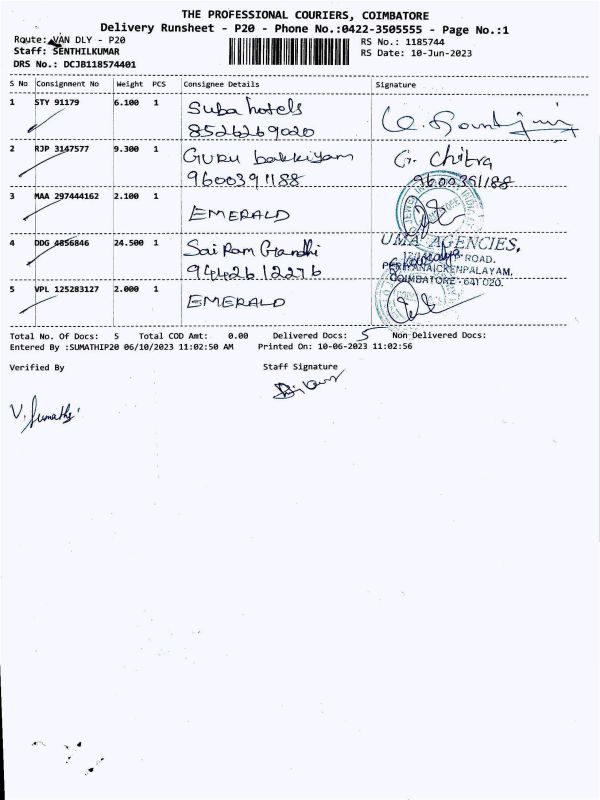 THE PROFESSIONAL COURIERS, COIMBATORE
Delivery Runsheet - P20 - Phone No.:0422-3505555 - Page No.:1
Route: VAN DLY - P20
RS No.: 1185744
Staff: SENTHILKUMAR
RS Date: 10-Jun-2023
DRS No.: DCJB118574401
S No Consignment No Weight PCS Consignee Details Signature
1 STY 91179 6.100 1 Suba hotels
8526269020
2 RJP 3147577 9.300 1 Guru bakkiyam G. Chitra
9600391188 9600391188
3 MAA 297444162 2.100 1
EMERALD
4 DDG 4856846 24.500 1 Sai Ram Gandhi UMA AGENCIES,
9442612276 ROAD.
PERIYANAICKENPALAYAM,
COIMBATORE - 641 020.
5 VPL 125283127 2.000 1 EMERALD
Total No. Of Docs: 5 Total COD Amt: 0.00 Delivered Docs: 5 Non Delivered Docs:
Entered By :SUMATHIP20 06/10/2023 11:02:50 AM Printed On: 10-06-2023 11:02:56
Verified By Staff Signature
V. Sumathy